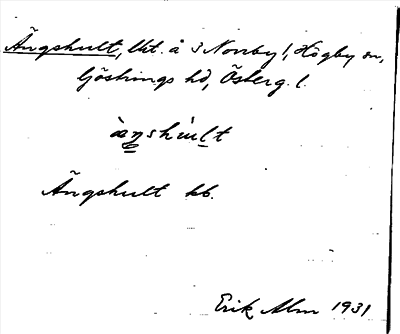 Ängshult, lht. å S Norrby!, Högby sn,
Göstrings hd, Österg. l.
Ängshult kb.
Erik Alm 1931